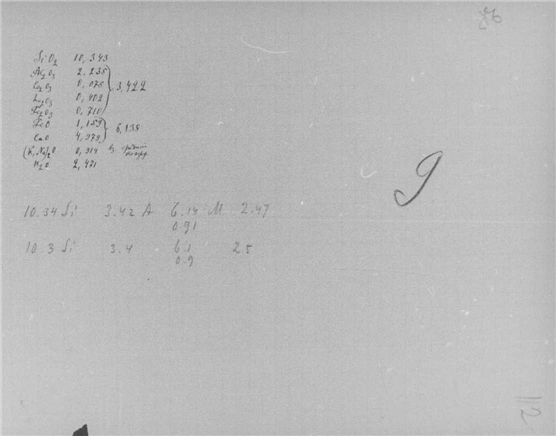 SiO2 10,343
Al2O3 2,235
Ce2O3 0,075 } 3,422
La2O3 0,402
Fe2O3 0,710
FeO 1,159 } 6,138
CaO 4,979
(K,Na)2O 0,914
H2O 2,471
10.34 Si 3.42 A 6.14 M 2.47
0.91
10.3 Si 3.4 6.1 2.5
0.9
9
112